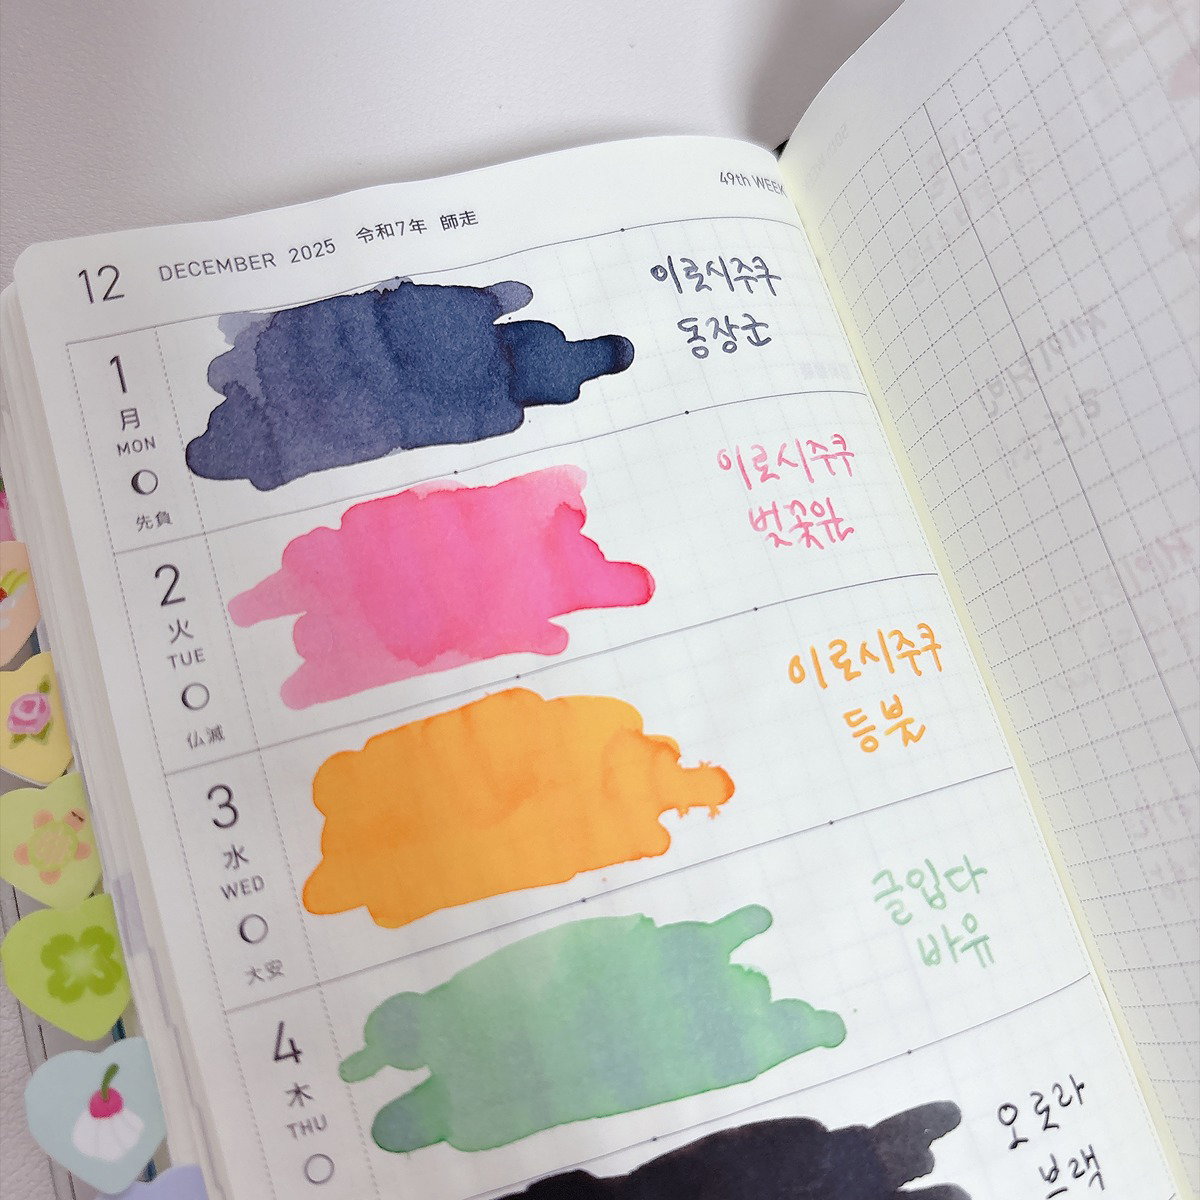 49th WEEK
12 DECEMBER 2025 令和7年 師走
1
月
MON
先負
이로시주쿠
동장군
2
火
TUE
仏滅
이로시주쿠
벚꽃잎
3
水
WED
大安
이로시주쿠
등불
4
木
THU
글입다
바유
오로라
브랙